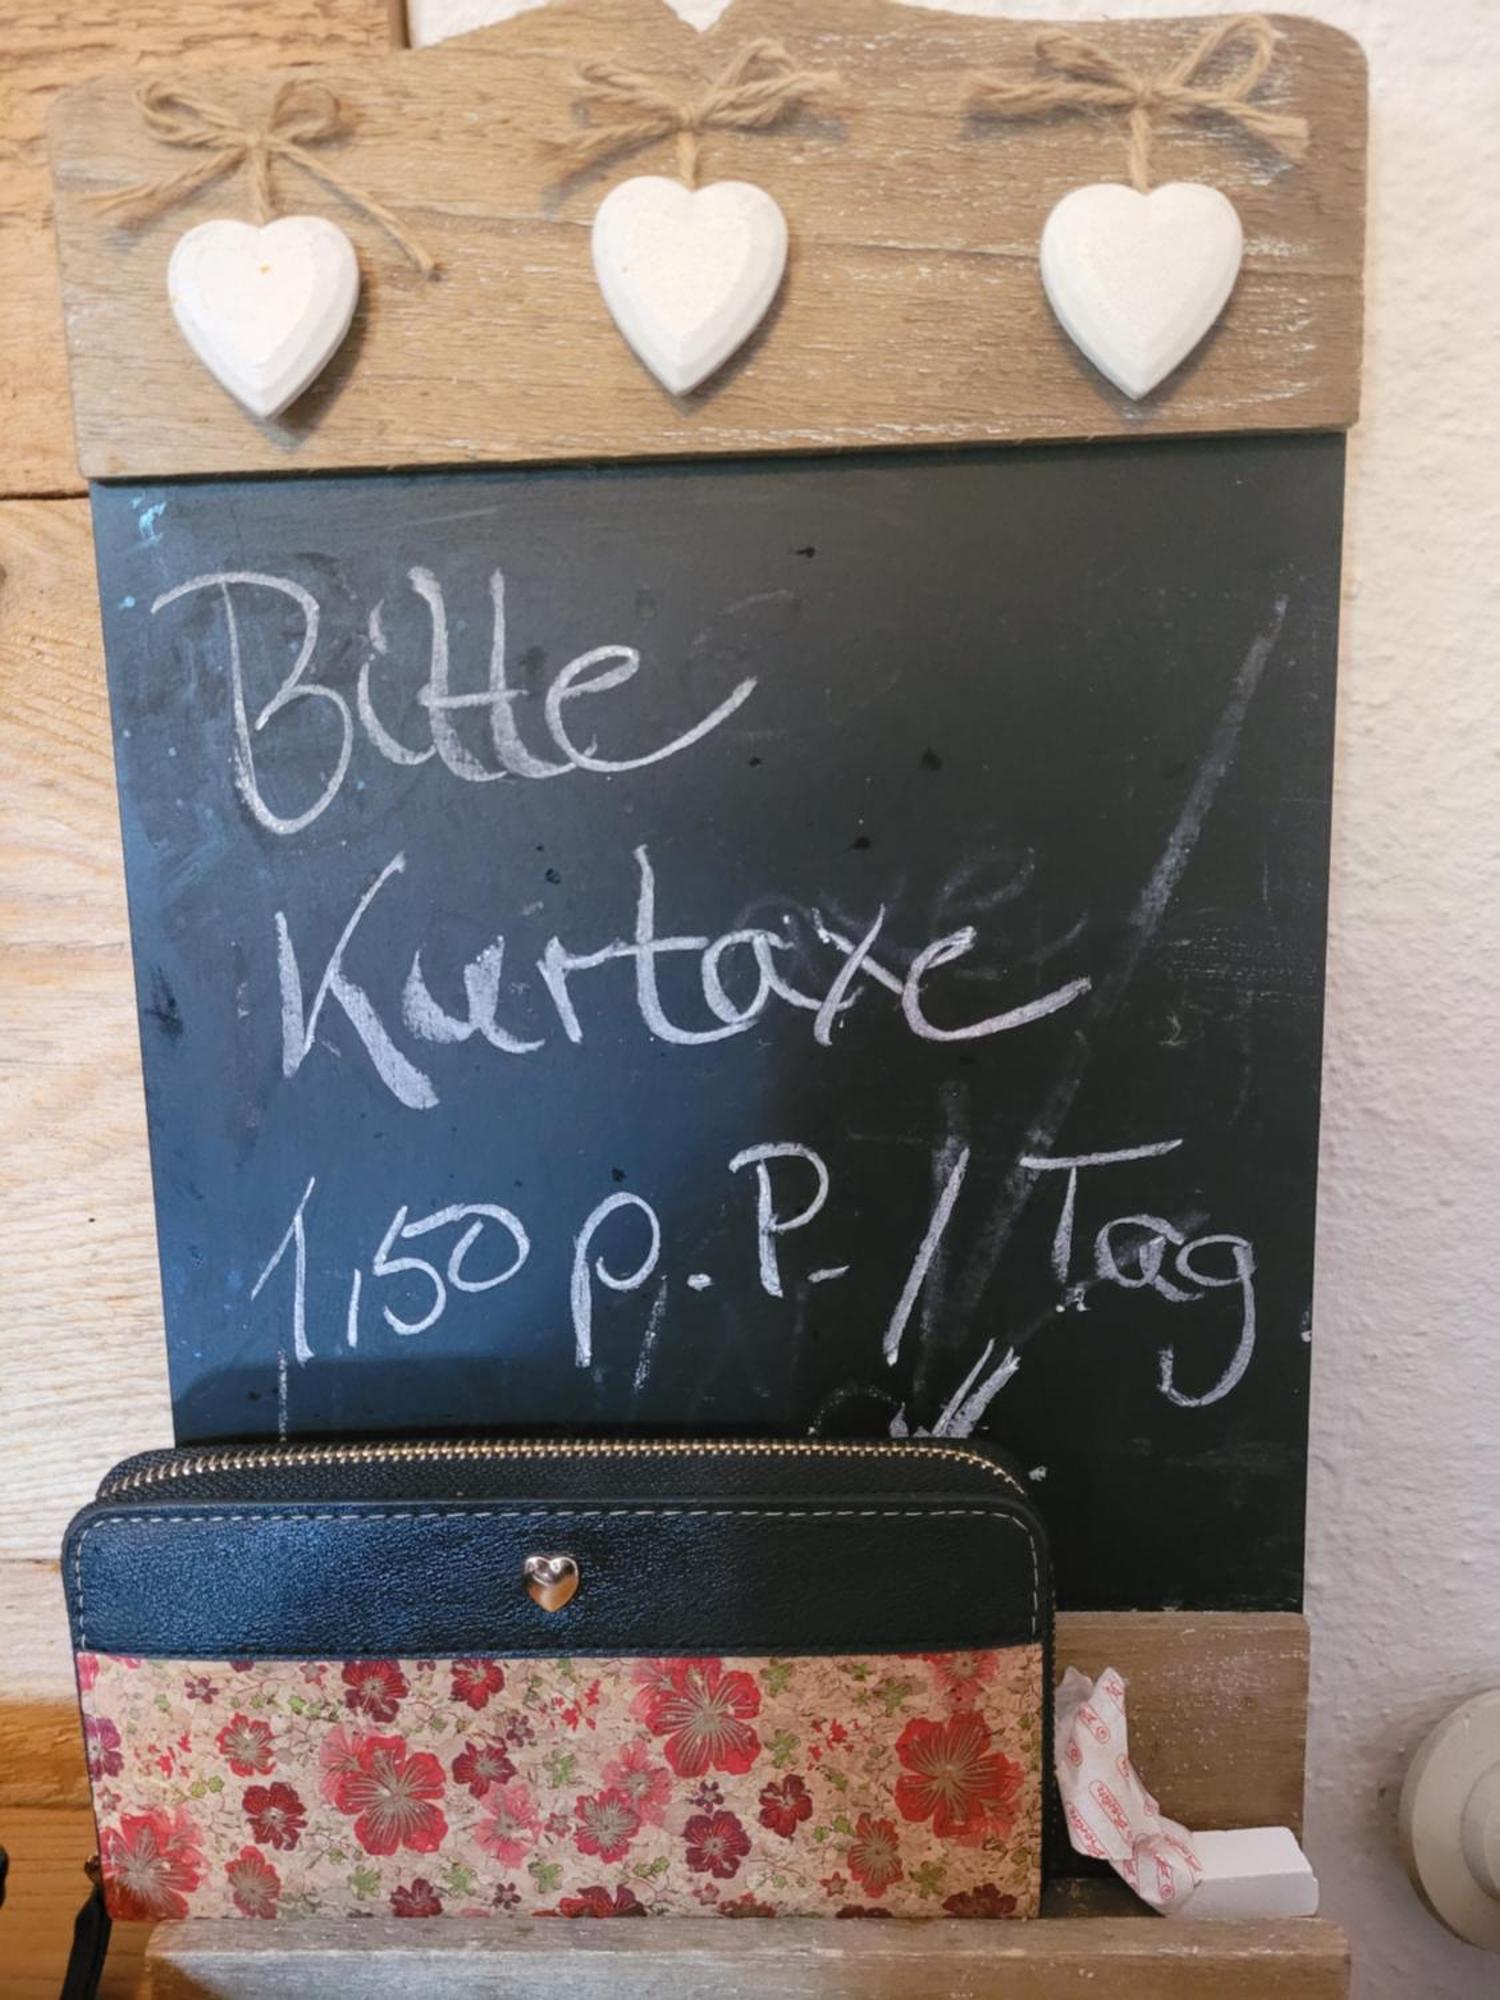 Bitte
Kurtaxe
1,50 p. P. / Tag